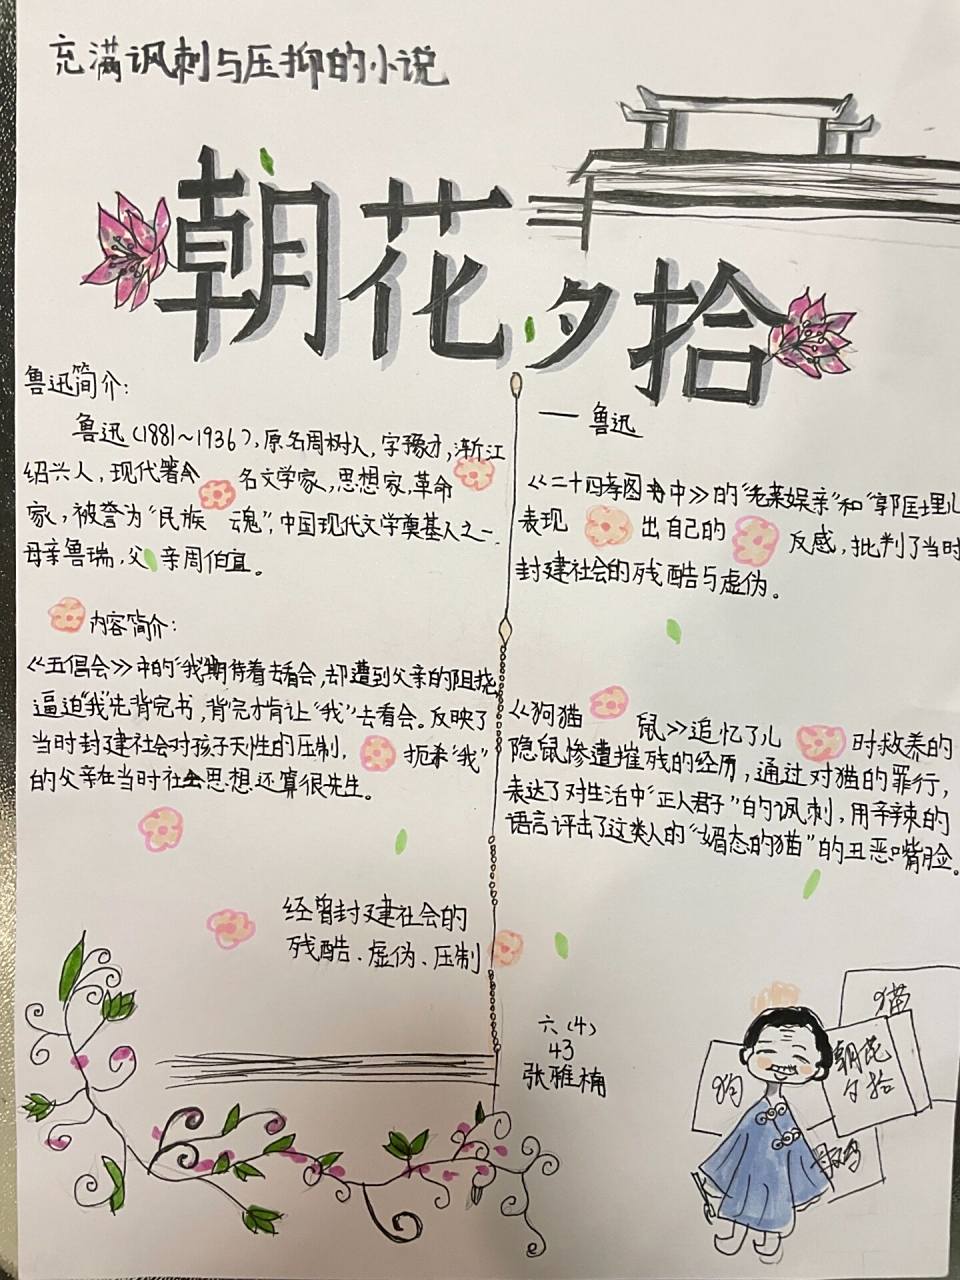 充满讽刺与压抑的小说
朝花夕拾
——鲁迅
鲁迅简介：
鲁迅(1881~1936)，原名周树人，字豫才，浙江
绍兴人，现代著名文学家，思想家，革命
家，被誉为"民族魂"，中国现代文学奠基人之一.
母亲鲁瑞，父亲周伯宜。
内容简介：
《五倡会》中的"我"期待着去看会，却遭到父亲的阻挠
逼迫"我"先背完书，背完才肯让"我"去看会。反映了
当时封建社会对孩子天性的压制，"我"
的父亲在当时社会思想还算很先生。
经曾封建社会的
残酷、虚伪、压制
《二十四孝图中》的"老莱娱亲"和"郭巨埋儿
表现出自己的反感，批判了当时
封建社会的残酷与虚伪。
《狗猫鼠》追忆了儿时救养的
隐鼠惨遭摧残的经历，通过对猫的罪行，
表达了对生活中"正人君子"的讽刺，用辛辣的
语言评击了这类人的"媚态的猫"的丑恶嘴脸。
六(4)
43
张雅楠
猫
狗
朝花
夕拾